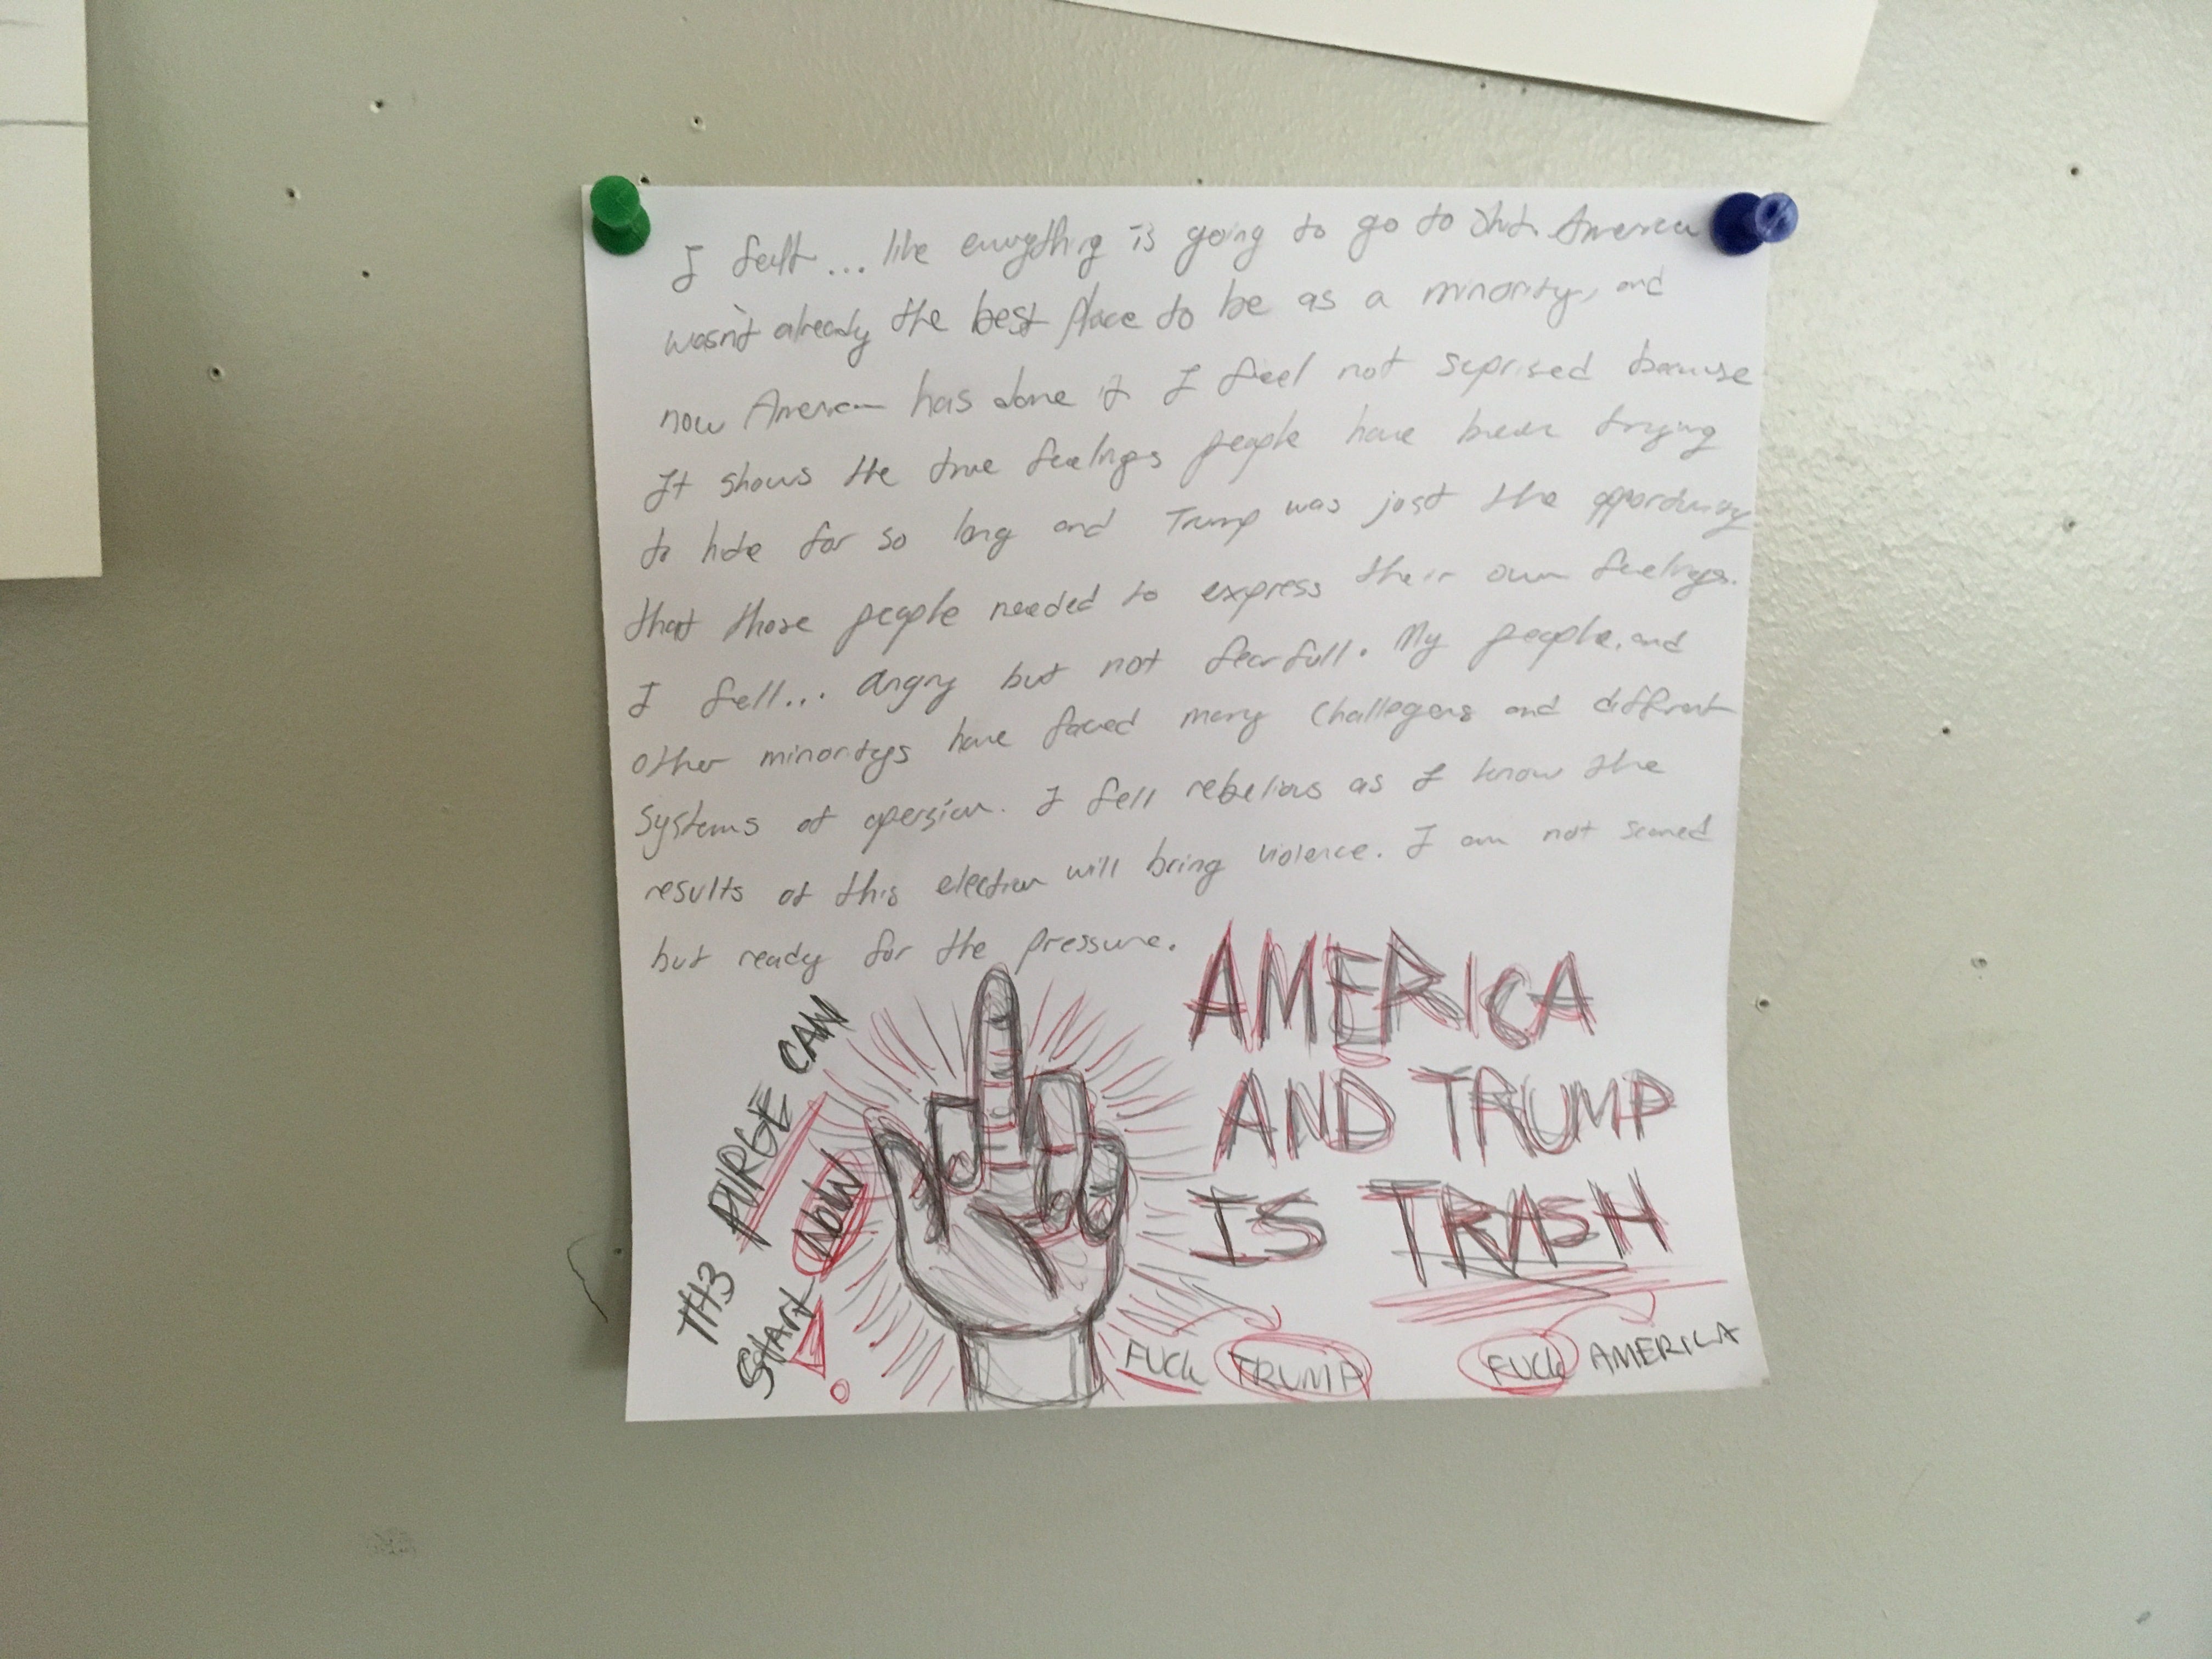 I felt... like everything is going to go to shit. America
wasn't already the best place to be as a minority, and
now America has done it I feel not suprised because
It shows the true feelings people have been trying
to hide for so long and Trump was just the opportunity
that those people needed to express their own feelings.
I fell... angry but not fearfull. My people, and
other minoritys have faced many challegens and diffrent
systems of opersion. I fell rebelious as I know the
results of this election will bring violence. I am not scared
but ready for the pressure.
TH3 PURGE CAN
START NOW!
AMERICA
AND TRUMP
IS TRASH
FUCK TRUMP
FUCK AMERICA